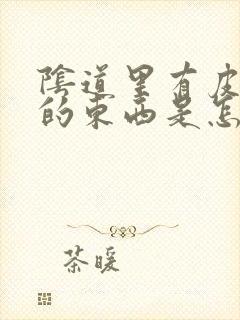 陰道里有皮
的東西是怎
茶暖